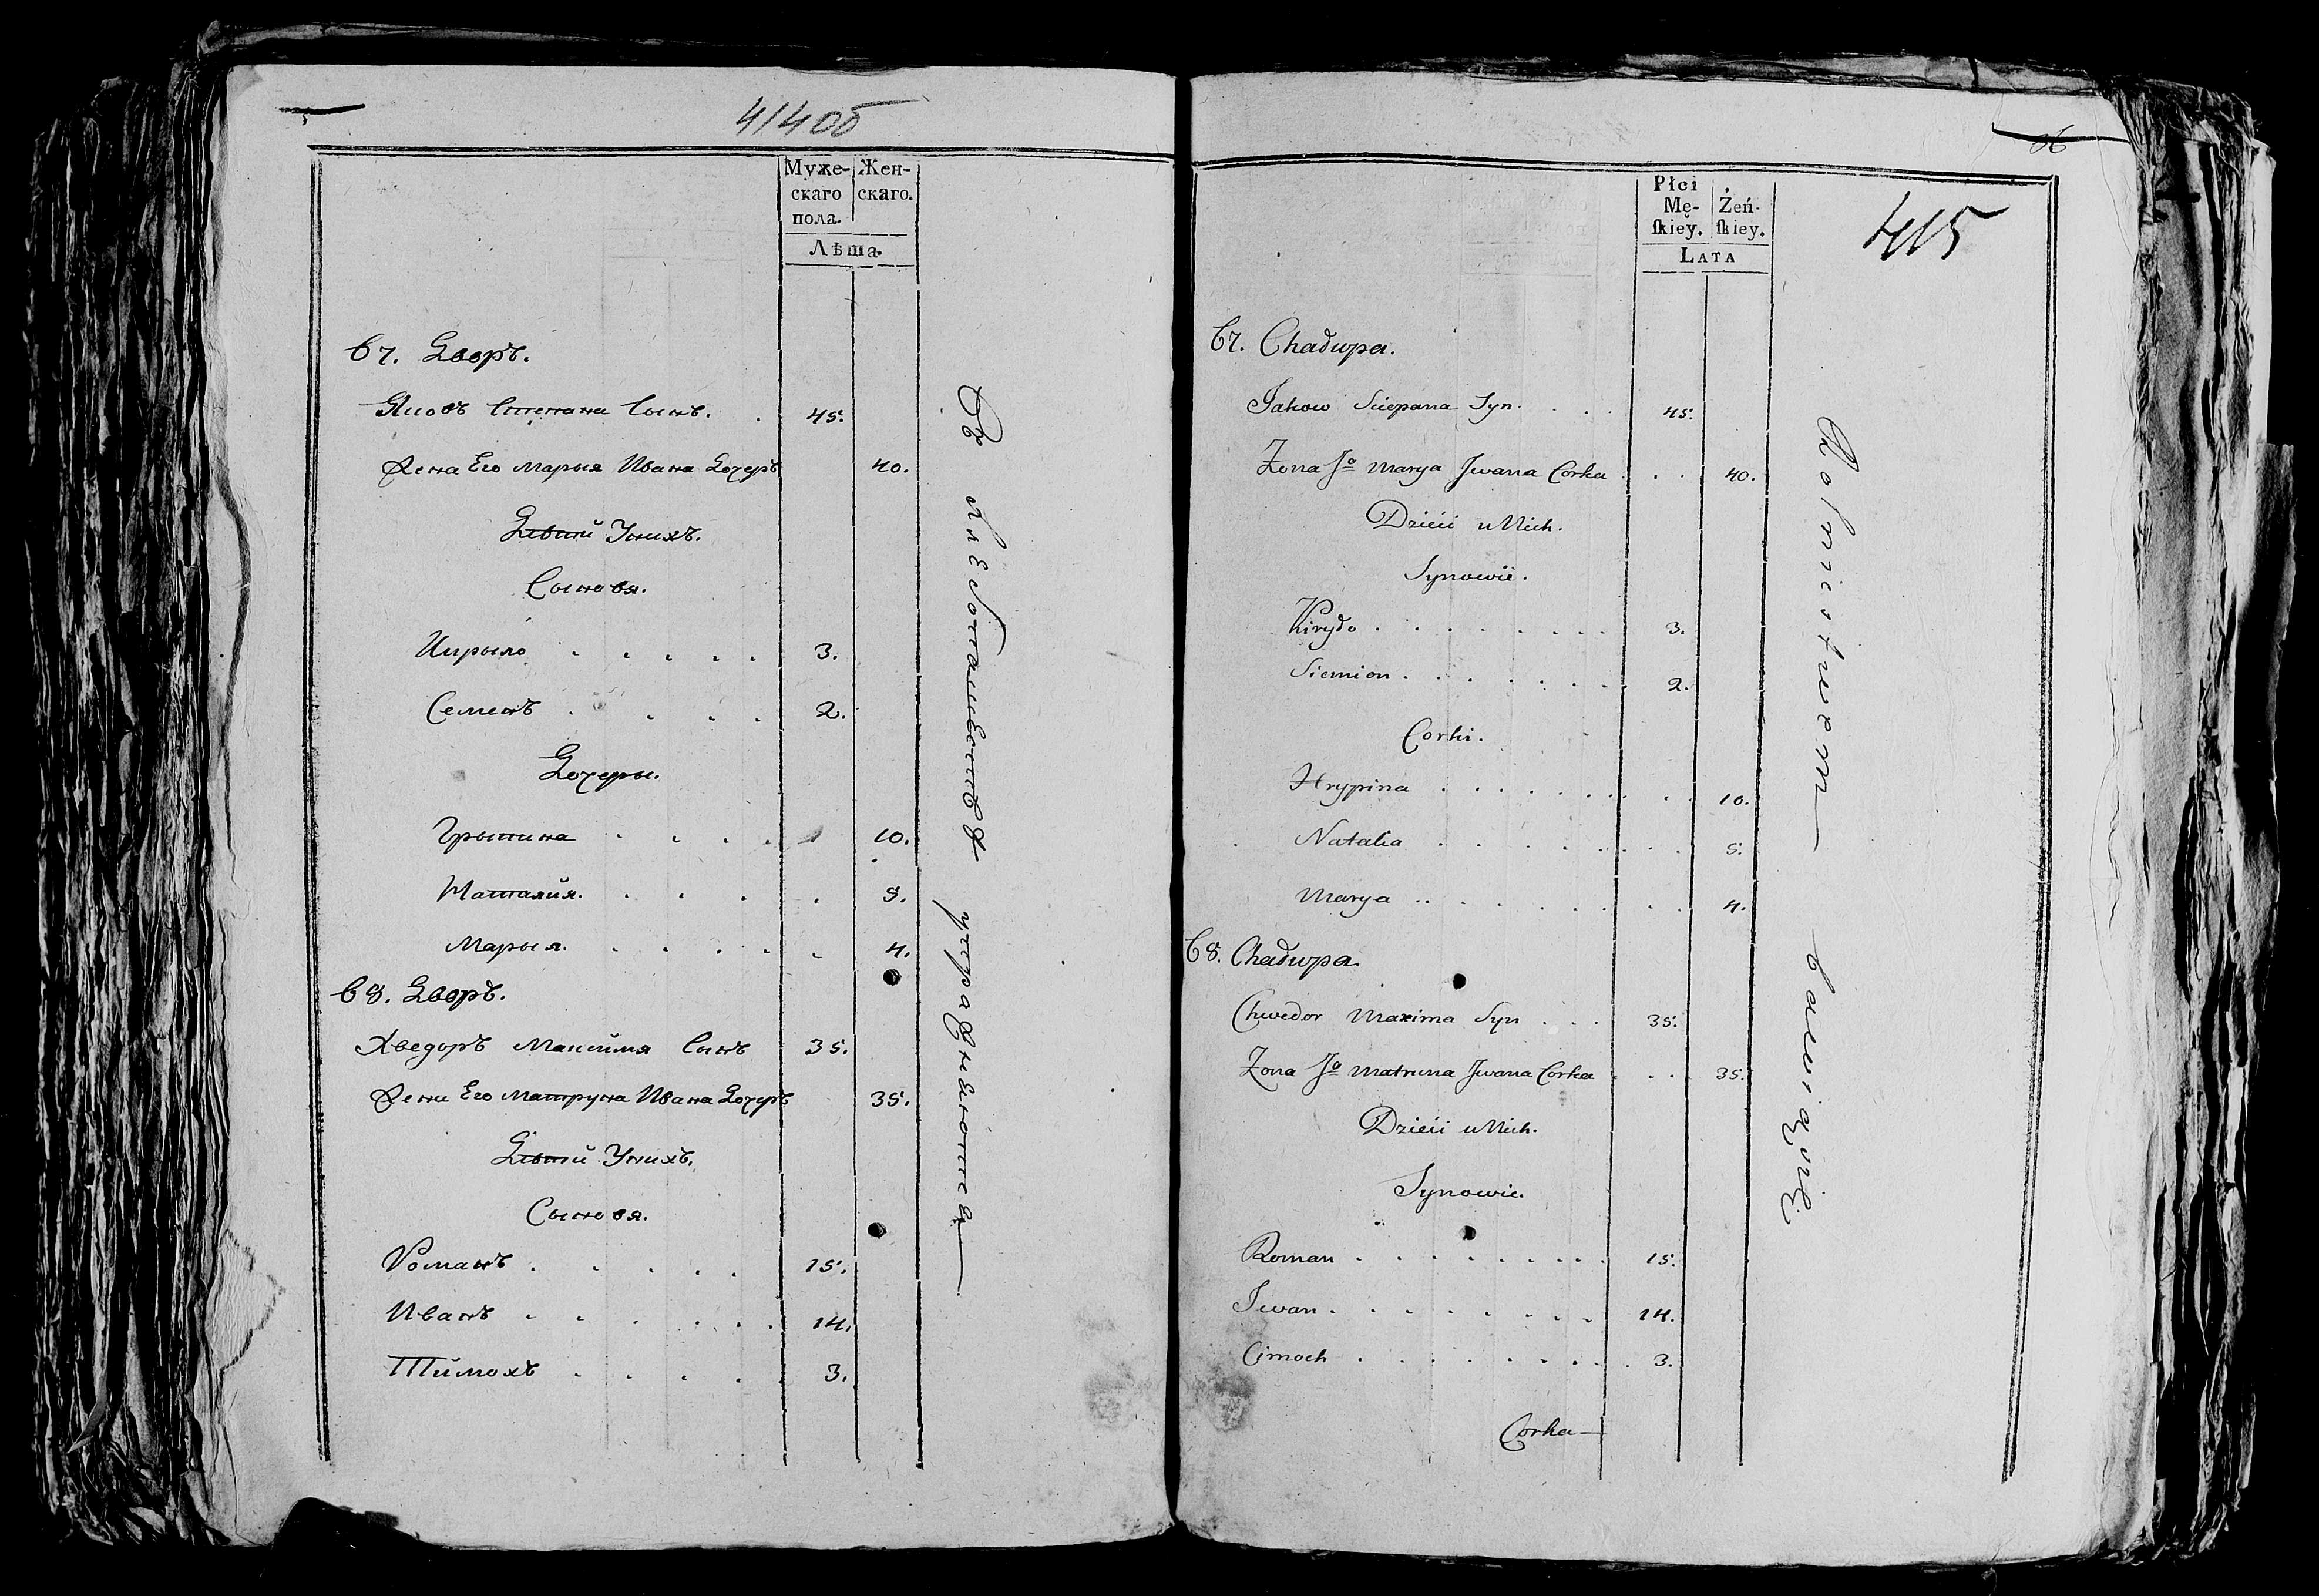 414об
Муже-
скаго
пола.
Жен-
скаго.
Лѣта.
67. Дворъ.
Яковъ Степана Сынъ. 45.
Жена Его Марыя Ивана Дочеръ 40.
Дѣтй Унихъ.
Сыновя.
Кирыло 3.
Семенъ 2.
Дочеры.
Грыпина 10.
Наталйя. 8.
Марыя. 4.
68. Дворъ.
Хведоръ Максимя Сынъ 35.
Жена Его Матруна Ивана Дочеръ 35.
Дѣтй Унихъ.
Сыновя.
Романъ 15.
Иванъ 14.
Тймохъ 3.
Въ упражнеются
415
Płci
Mę-
ſkiey.
Żeń-
ſkiey.
LATA
67. Chałupa.
Jakow Sciepana Syn. 45.
Zona Jo Marya Jwana Corka 40.
Dzieci u Nich.
Synowie.
Kiryło 3.
Siemion 2.
Corki.
Hrypina 10.
Natalia 8.
Marya 4.
68. Chałupa.
Chwedor Maxima Syn 35.
Zona Jo Matruna Jwana Corka 35.
Dzieci u Nich.
Synowie.
Roman 15.
Jwan 14.
Cimoch 3.
Corka
Rolnictwem bawią się.